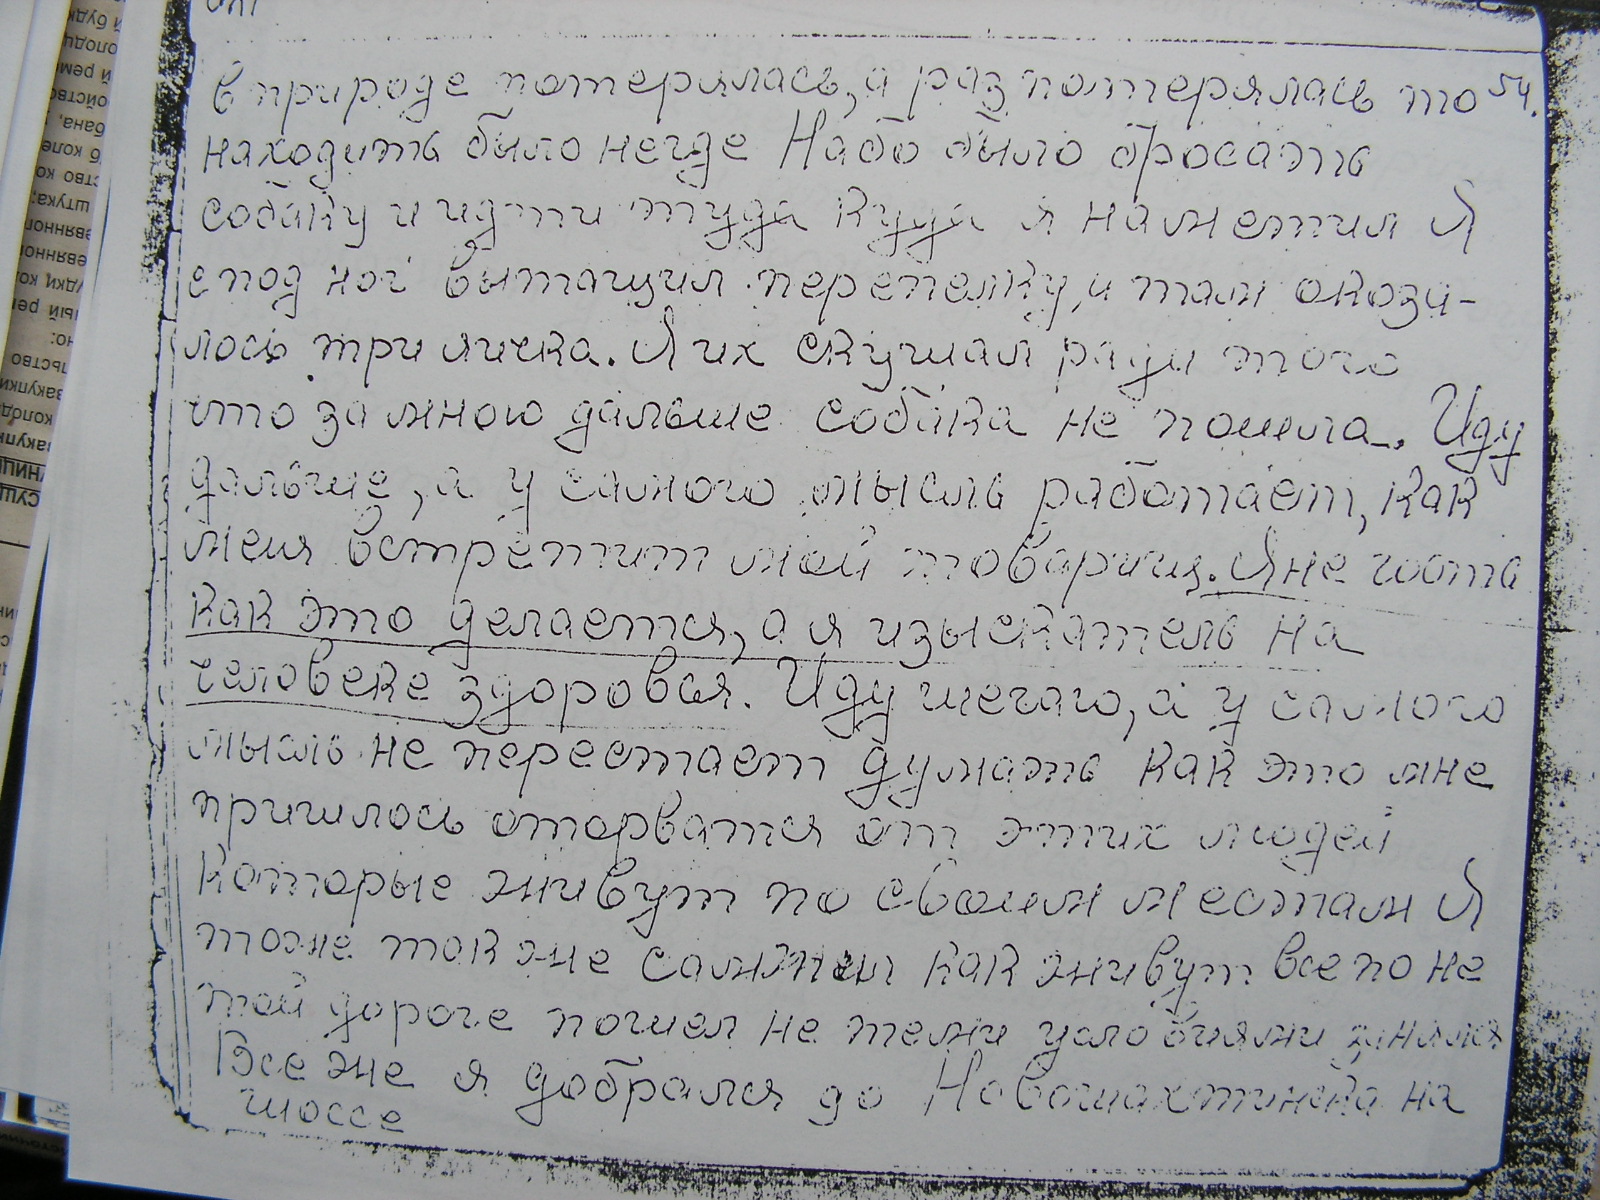 54.
в природе потерялась, а раз потерялась то
находить было негде Надо было бросать
собаку и идти туда куда я наметил Я
с под ног вытащил перепелку, и там окози-
лось три яичка. Я их скушал ради того
что за мною дальше собака не пошла. Иду
дальше, а у самого мысль работает, как
меня встретит мой товарищ. Я не
как это делается, а я изыскатель на
человеке здоровья. Иду шегаю, а у самого
мысль не перестает думать как это мне
пришлось оторватся от этих людей
которые живут по своим местам Я
тоже так же как живут все по не
той дороге пошел не теми условиями занялся
Все же я добрался до Новошахтинска на
шоссе